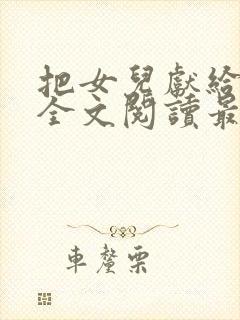 把女兒獻給
全文閱讀最
車螯栗